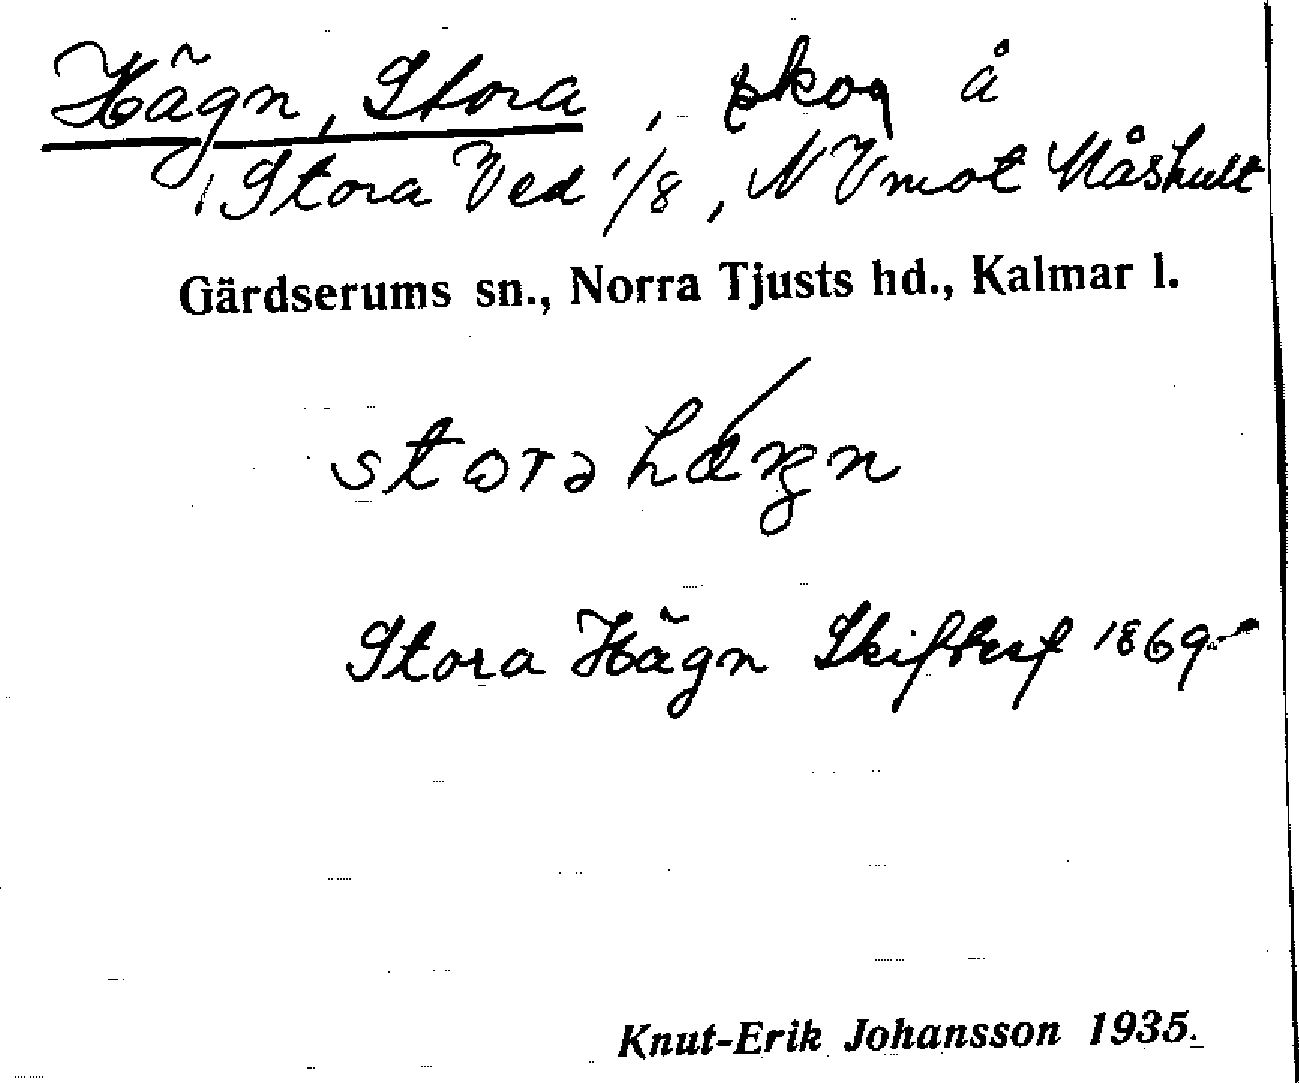 Hägn, Stora, skog å
Stora Ved 1/8, NV mot Måshult
Gärdserums sn., Norra Tjusts hd., Kalmar l.
stora
Stora Hägn Skifterf 1869
Knut-Erik Johansson 1935.